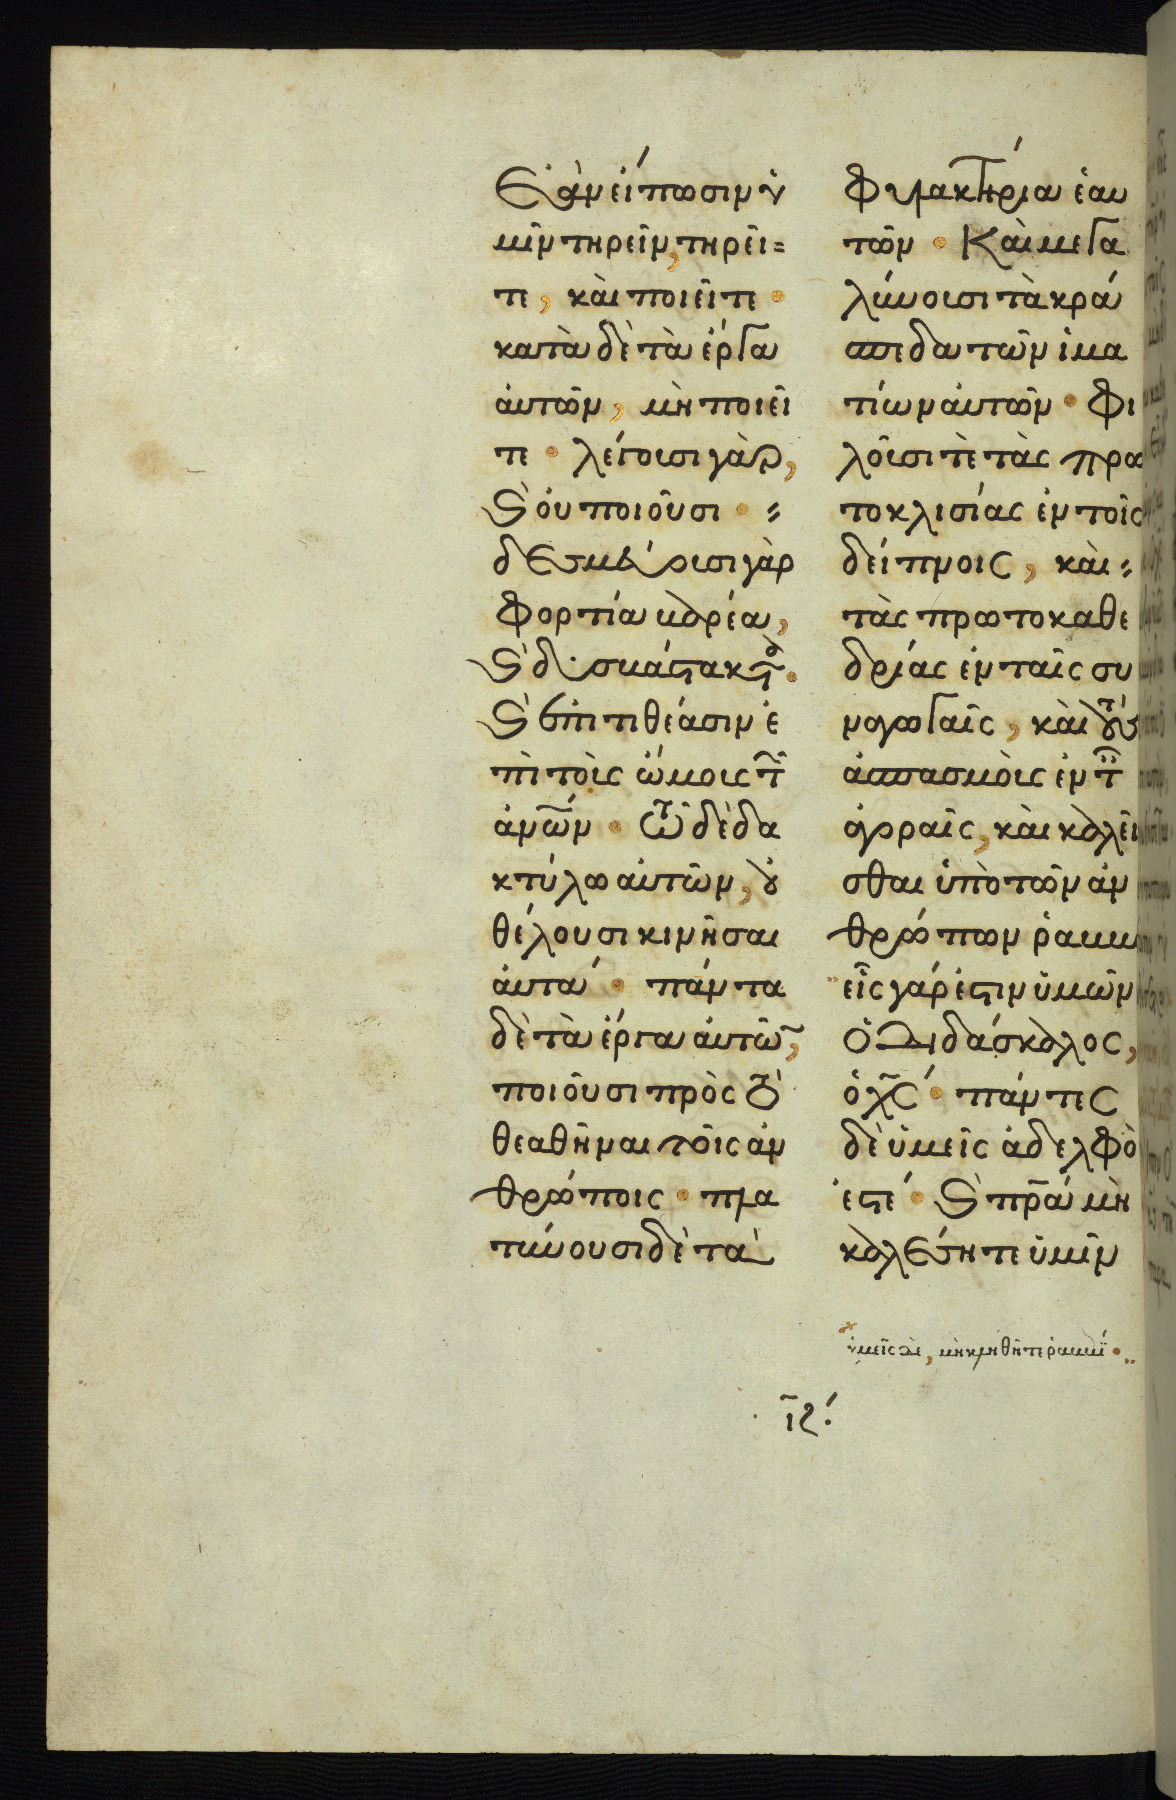 Ἐὰν εἴπωσιν ὑ
μῖν τηρεῖν, τηρεῖ=
τε, καὶ ποιεῖτε·
κατὰ δὲ τὰ ἔργα
αὐτῶν, μὴ ποιεῖ
τε· λέγουσι γὰρ,
Ϛ οὐ ποιοῦσι· =
δεσμεύουσι γὰρ
Φορτία βαρέα,
Ϛ δυσβάστακτα·
Ϛ ἐπιτιθέασιν ἐ
πὶ τοὺς ὤμους τῶν
ἀνων· τῷ δὲ δα
κτύλω αὐτῶν, οὐ
θέλουσι κινῆσαι
αὐτά· πάντα
δὲ τὰ ἔργα αὐτῶ,
ποιοῦσι πρὸς τὸ
θεαθῆναι τοῖς ἀν
θρώποις· πλα
τύνουσι δὲ τὰ
Φυλακτήρια ἑαυ
τῶν· Καὶ μεγα
λύνουσι τὰ κρά
σπεδα τῶν ἱμα
τίων αὐτῶν· Φι
λοῦσί τε τὰς πρω
τοκλισίας ἐν τοῖς
δείπνοις, καὶ=
τὰς πρωτοκαθε
δρίας ἐν ταῖς συ
ναγωγαῖς, καὶ τοὺς
ἀσπασμοὺς ἐν ταῖς
ἀγοραῖς, καὶ καλεῖ
σθαι ὑπὸ τῶν ἀν
θρώπων ῥαββι
εἷς γάρ ἐστιν ὑμῶν
ὁ διδάσκαλος,
ὁ χς· πάντες
δὲ ὑμεῖς ἀδελφοί
ἐστέ· Ϛ πρα μὴ
καλέσητε ὑμῖν
ὑμεῖς δὲ, μὴ κληθῆτε ῥαββί·
ις